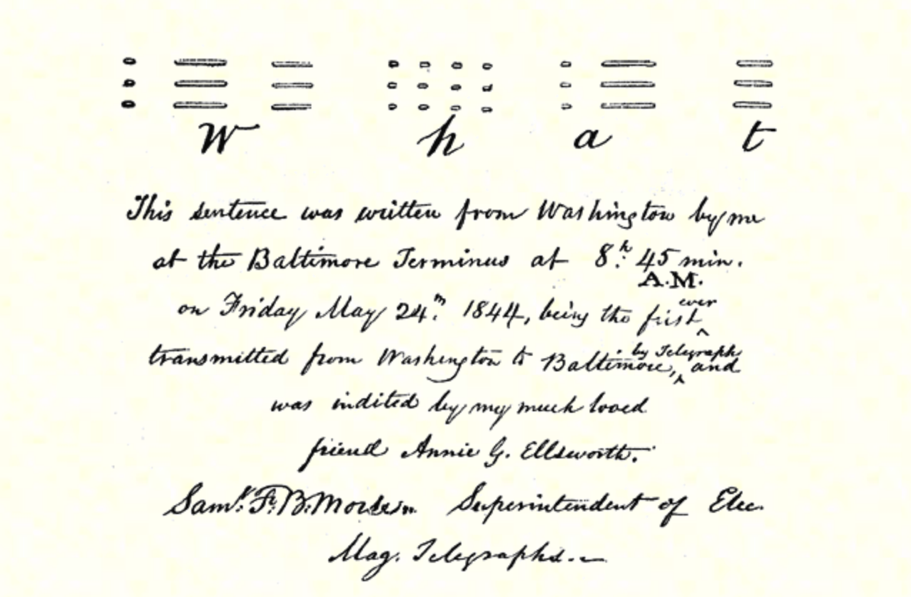 W h a t
This sentence was written from Washington by me
at the Baltimore Terminus at 8.h 45 min.
A.M.
on Friday May 24.th 1844, being the first ever
transmitted from Washington to Baltimore, by Telegraph and
was indited by my much loved
friend Annie G. Ellsworth.
Saml. F. B. Morse. Superintendent of Elec.
Mag. Telegraphs.